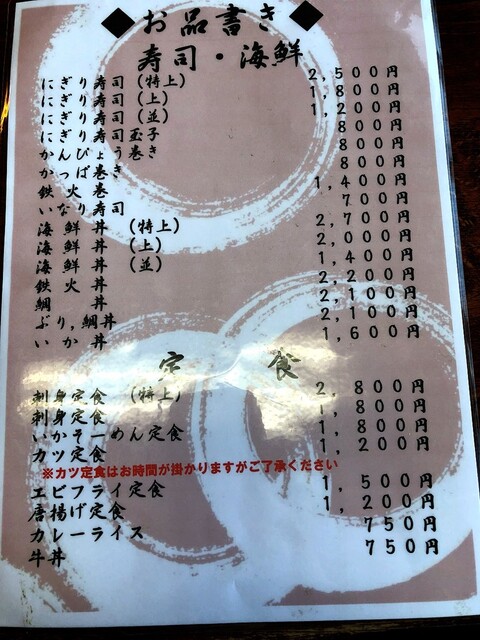 ◆お品書き◆
寿司・海鮮
にぎり寿司(特上) 2,500円
にぎり寿司(上) 1,800円
にぎり寿司(並) 1,200円
にぎり寿司玉子 800円
かんぴょう巻き 800円
かっぱ巻き 800円
鉄火巻 1,400円
いなり寿司 700円
海鮮丼(特上) 2,700円
海鮮丼(上) 2,000円
海鮮丼(並) 1,400円
鉄火丼 2,200円
鯛丼 2,100円
ぶり,鯛丼 2,100円
いか丼 1,600円
定食
刺身定食(特上) 2,800円
刺身定食 1,800円
いかそーめん定食 1,800円
カツ定食 1,200円
※カツ定食はお時間が掛かりますがご了承ください
エビフライ定食 1,500円
唐揚げ定食 1,200円
カレーライス 750円
牛丼 750円